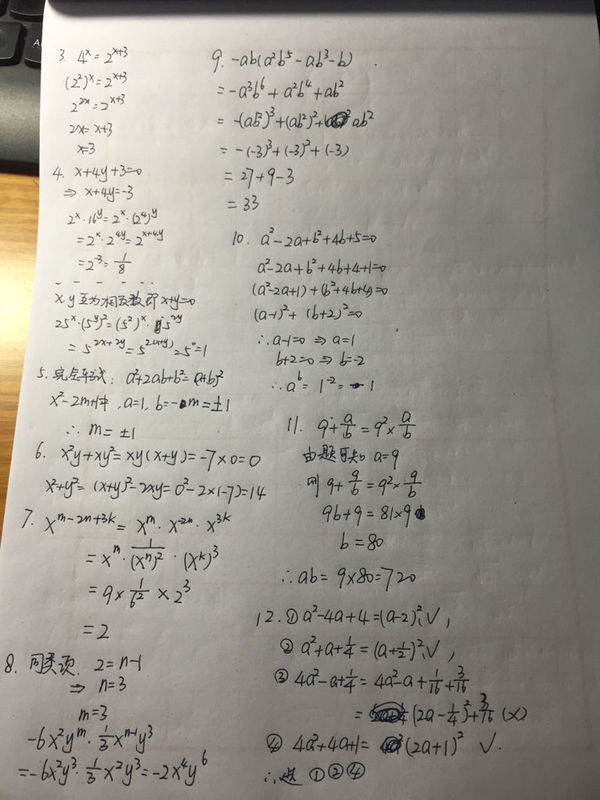 3. 4^x = 2^{x+3}
(2²)^x = 2^{x+3}
2^{2x} = 2^{x+3}
2x = x+3
x=3
4. x+4y+3=0
⇒ x+4y=-3
2^x·16^y = 2^x·(2^4)^y
= 2^x·2^{4y} = 2^{x+4y}
= 2^{-3} = 1/8
x.y互为相反数即x+y=0
25^x·(5^y)² = (5²)^x·5^{2y}
= 5^{2x+2y} = 5^{2(x+y)} = 5^0 = 1
5. 完全平方式: a²+2ab+b²=(a+b)²
x²-2m+1中, a=1, b=-m=±1
∴ m=±1
6. x²y+xy²=xy(x+y)=-7×0=0
x²+y²=(x+y)²-2xy=0²-2×(-7)=14
7. x^{m-2n+3k} = x^m·x^{-2n}·x^{3k}
= x^m·1/(x^n)²·(x^k)³
= 9×1/6²×2³
= 2
8. 同类项. 2=n-1
⇒ n=3
m=3
-6x²y^m·1/3x^{n-1}y³
=-6x²y³·1/3x²y³=-2x⁴y⁶
9. -ab(a²b⁵-ab³-b)
= -a³b⁶+a²b⁴+ab²
= -(ab²)³+(ab²)²+ab²
= -(-3)³+(-3)²+(-3)
= 27+9-3
= 33
10. a²-2a+b²+4b+5=0
a²-2a+b²+4b+4+1=0
(a²-2a+1)+(b²+4b+4)=0
(a-1)²+(b+2)²=0
∴a-1=0 ⇒ a=1
b+2=0 ⇒ b=-2
∴a^b=1^{-2}=1
11. 9+a/b=9²×a/b
由题可知a=9
则9+9/b=9²×9/b
9b+9=81×9
b=80
∴ab=9×80=720
12. ①a²-4a+4=(a-2)²√,
②a²+a+1/4=(a+1/2)²√,
③4a²-a+1/4=4a²-a+1/16+3/16
=(2a-1/4)²+3/16(×)
④4a²+4a+1=(2a+1)² √.
∴选①②④